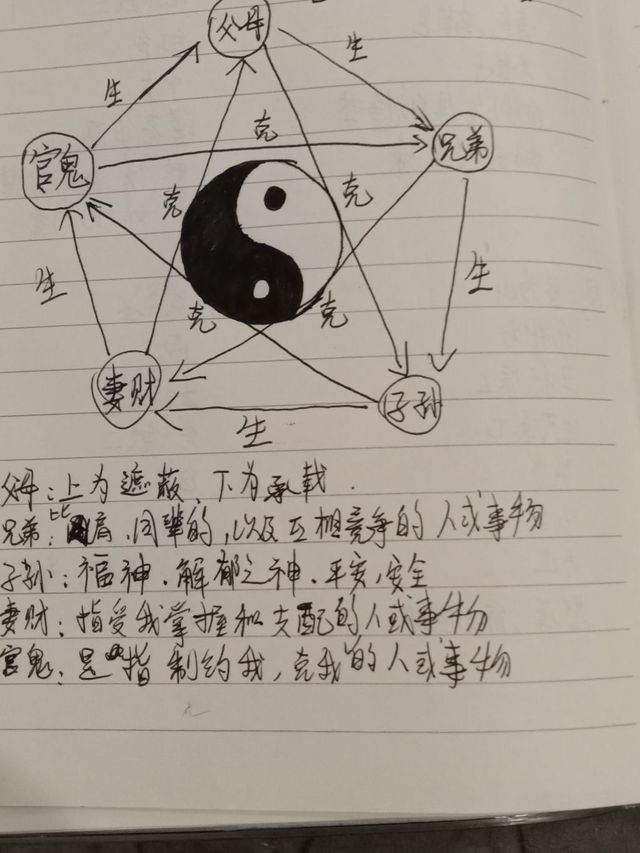 父母
生
生
克
官鬼
兄弟
克
克
生
生
克
克
妻财
子孙
生
父母:上为遮蔽、下为承载.
兄弟:比肩.同辈的,以及互相竞争的人或事物
子孙:福神.解郁之神.平安,安全
妻财:指受我掌握和支配的人或事物
官鬼:是指制约我,克我的人或事物